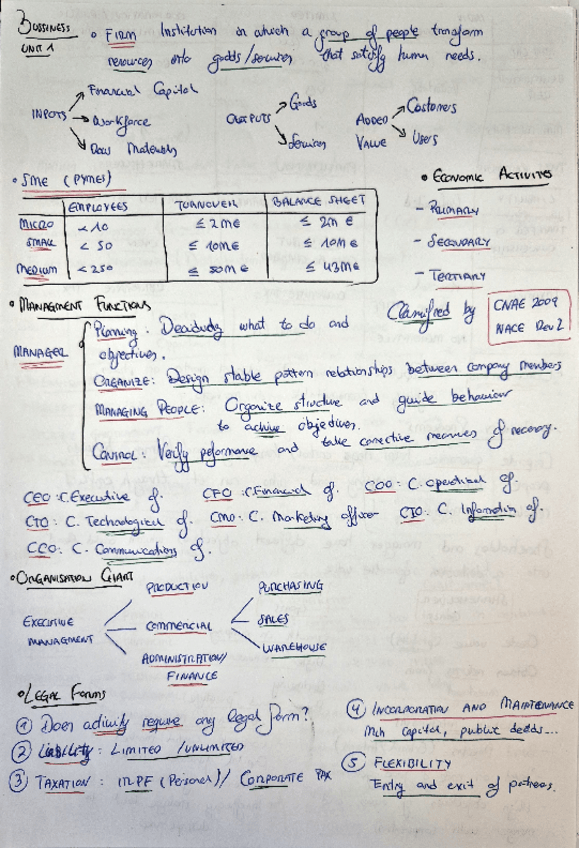 BUSSINESS
UNIT 1
• FIRM Institution in which a group of people transform
resources into goods/services that satisfy human needs.
INPUTS
Financial Capital
Workforce
Raw Materials
OUTPUTS
Goods
Services
ADDED VALUE
Customers
Users
• SME (PYMES)
EMPLOYEES TURNOVER BALANCE SHEET
MICRO < 10 ≤ 2 M € ≤ 2 M €
SMALL < 50 ≤ 10 M € ≤ 10 M €
MEDIUM < 250 ≤ 50 M € ≤ 43 M €
• ECONOMIC ACTIVITIES
- PRIMARY
- SECUNDARY
- TERTIARY
Classified by
CNAE 2009
NACE Rev 2
• MANAGMENT FUNCTIONS
MANAGER
Planning. Deciding what to do and
objectives.
ORGANIZE: Design stable pattern relationships between company members
MANAGING PEOPLE: Organize structure and guide behaviour
to achive objectives.
CONTROL: Verify peformance and take corrective measures of recovery.
CEO: C. Executive of. CFO: C. Financial of. COO: C. operational of.
CTO: C. Technological of. CMO: C. Marketing officer CIO: C. Information of.
CCO: C. Communications of.
• ORGANISATION CHART
EXECUTIVE
MANAGMENT
PRODUCTION
COMMERCIAL
ADMINISTRATION/
FINANCE
PURCHASING
SALES
WAREHOUSE
• LEGAL FORMS
① Does activity require any legal form?
② LIABILITY: LIMITED / UNLIMITED
③ TAXATION: IRPF (Personal) / CORPORATE TAX
④ INCORPORATION AND MAINTENANCE
Min capital, public deeds...
⑤ FLEXIBILITY
Entry and exit of partners.